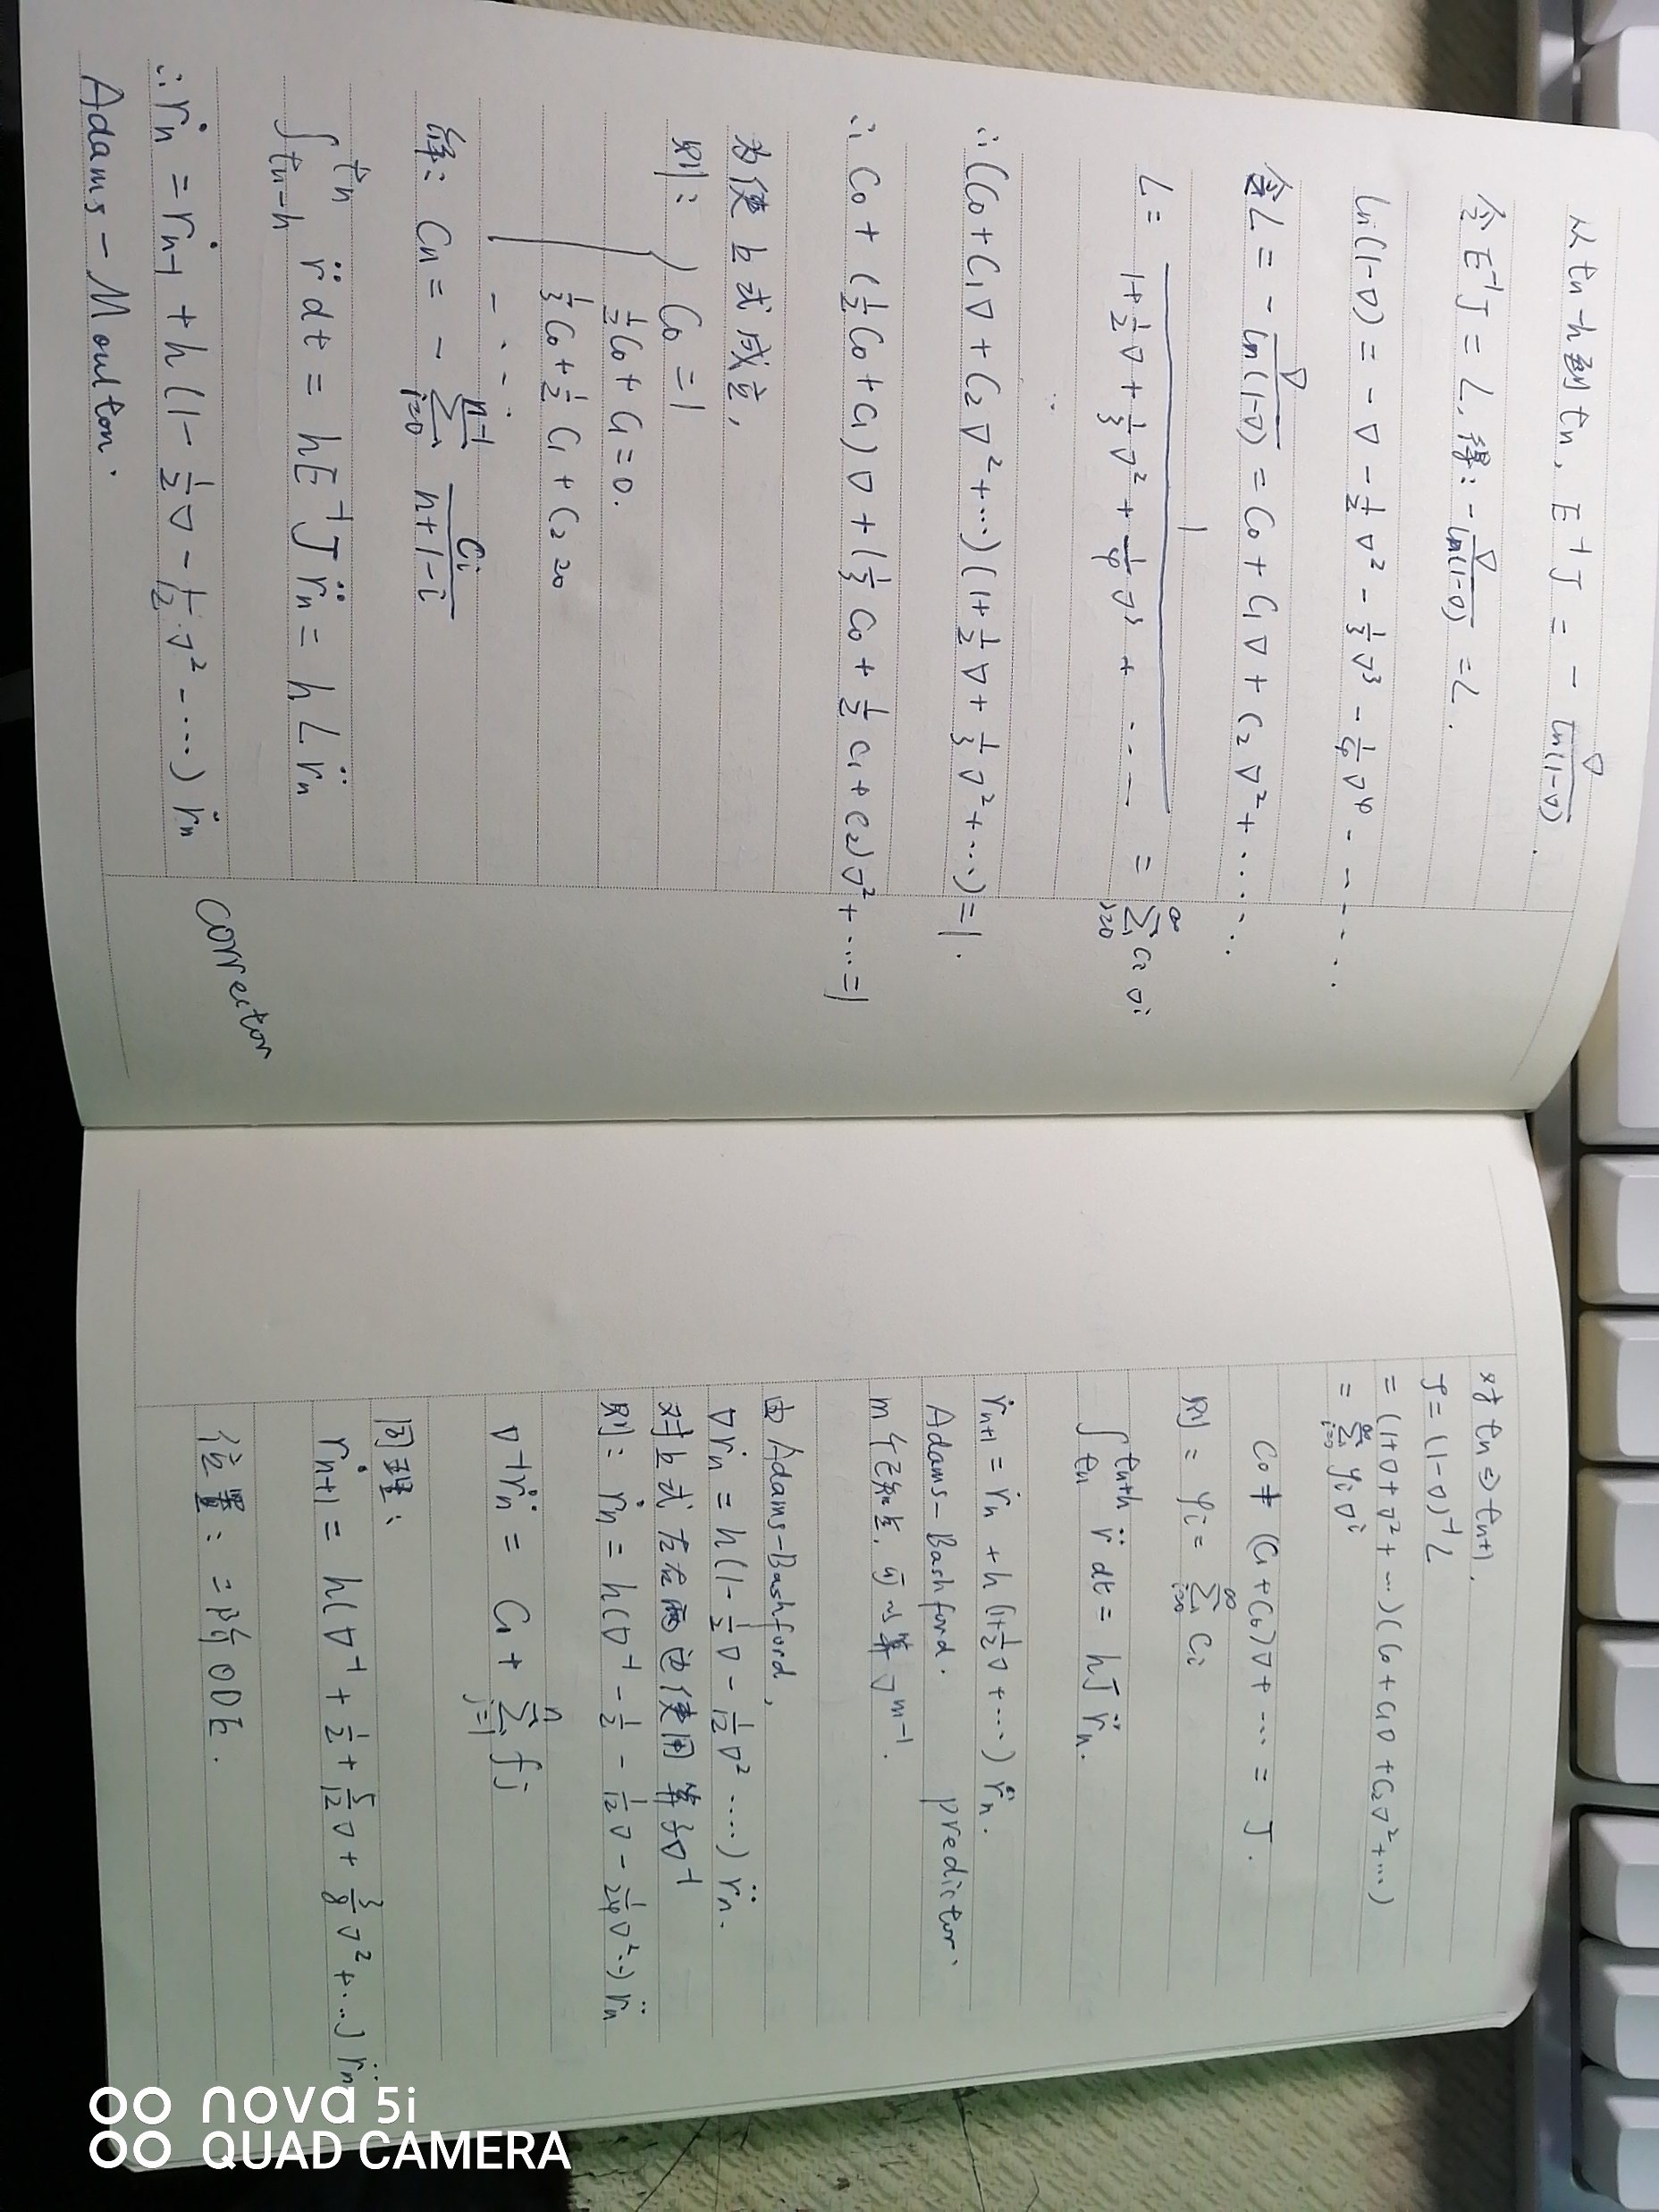 从 tn-h到 tn, E⁻¹J = - ∇/ln(1-∇).
令 E⁻¹J = L, 得: - ∇/ln(1-∇) = L.
ln(1-∇) = - ∇ - 1/2 ∇² - 1/3 ∇³ - 1/4 ∇⁴ - - - - ..
令 L = - ∇/ln(1-∇) = C0 + C1∇ + C2∇² + ......
L = 1/(1+ 1/2 ∇ + 1/3 ∇² + 1/4 ∇³ + .....) = ∑_{i=0}^{∞} Ci ∇ⁱ
∴ (C0 + C1∇ + C2∇²+ ...)(1+ 1/2 ∇ + 1/3 ∇² + ...) = 1.
∴ C0 + (1/2 C0 + C1)∇ + (1/3 C0 + 1/2 C1 + C2)∇² + ... = 1
为使上式成立,
则: C0 = 1
1/2 C0 + C1 = 0.
1/3 C0 + 1/2 C1 + C2 = 0
- . . .
解: Cn = - ∑_{i=0}^{n-1} Ci/(n+1-i)
∫_{tn-h}^{tn} r̈ dt = hE⁻¹J r̈n = h L r̈n
∴ ṙn = ṙn-1 + h (1- 1/2 ∇ - 1/12 ∇² - ....) r̈n
corrector
Adams - Moulton.
对 tn ⇒ tn+1,
J = (1-∇)⁻¹ L
= (1+∇+∇²+ ...)(C0 + C1∇ + C2∇²+...)
= ∑_{i=0}^{∞} γi ∇ⁱ
C0 + (C1+C0)∇ + ... = J.
则 = γi = ∑_{i=0}^{∞} Ci
∫_{tn}^{tn+h} r̈ dt = hJ r̈n.
ṙn+1 = ṙn + h (1+ 1/2 ∇ + ...) r̈n.
Adams-Bashford. predictor.
m个已知点, 可以算 ∇ᵐ⁻¹.
由 Adams-Bashford,
∇ṙn = h(1- 1/2 ∇ - 1/12 ∇² ....) r̈n.
对上式左右两边使用算子∇⁻¹
则: ṙn = h(∇⁻¹ - 1/2 - 1/12 ∇ - 1/24 ∇² ..) r̈n
∇⁻¹r̈n = C1 + ∑_{j=1}^{n} fj
同理:
ṙn+1 = h(∇⁻¹ + 1/2 + 5/12 ∇ + 3/8 ∇² + ...) r̈n
位置: 二阶ODE.
nova 5i
QUAD CAMERA